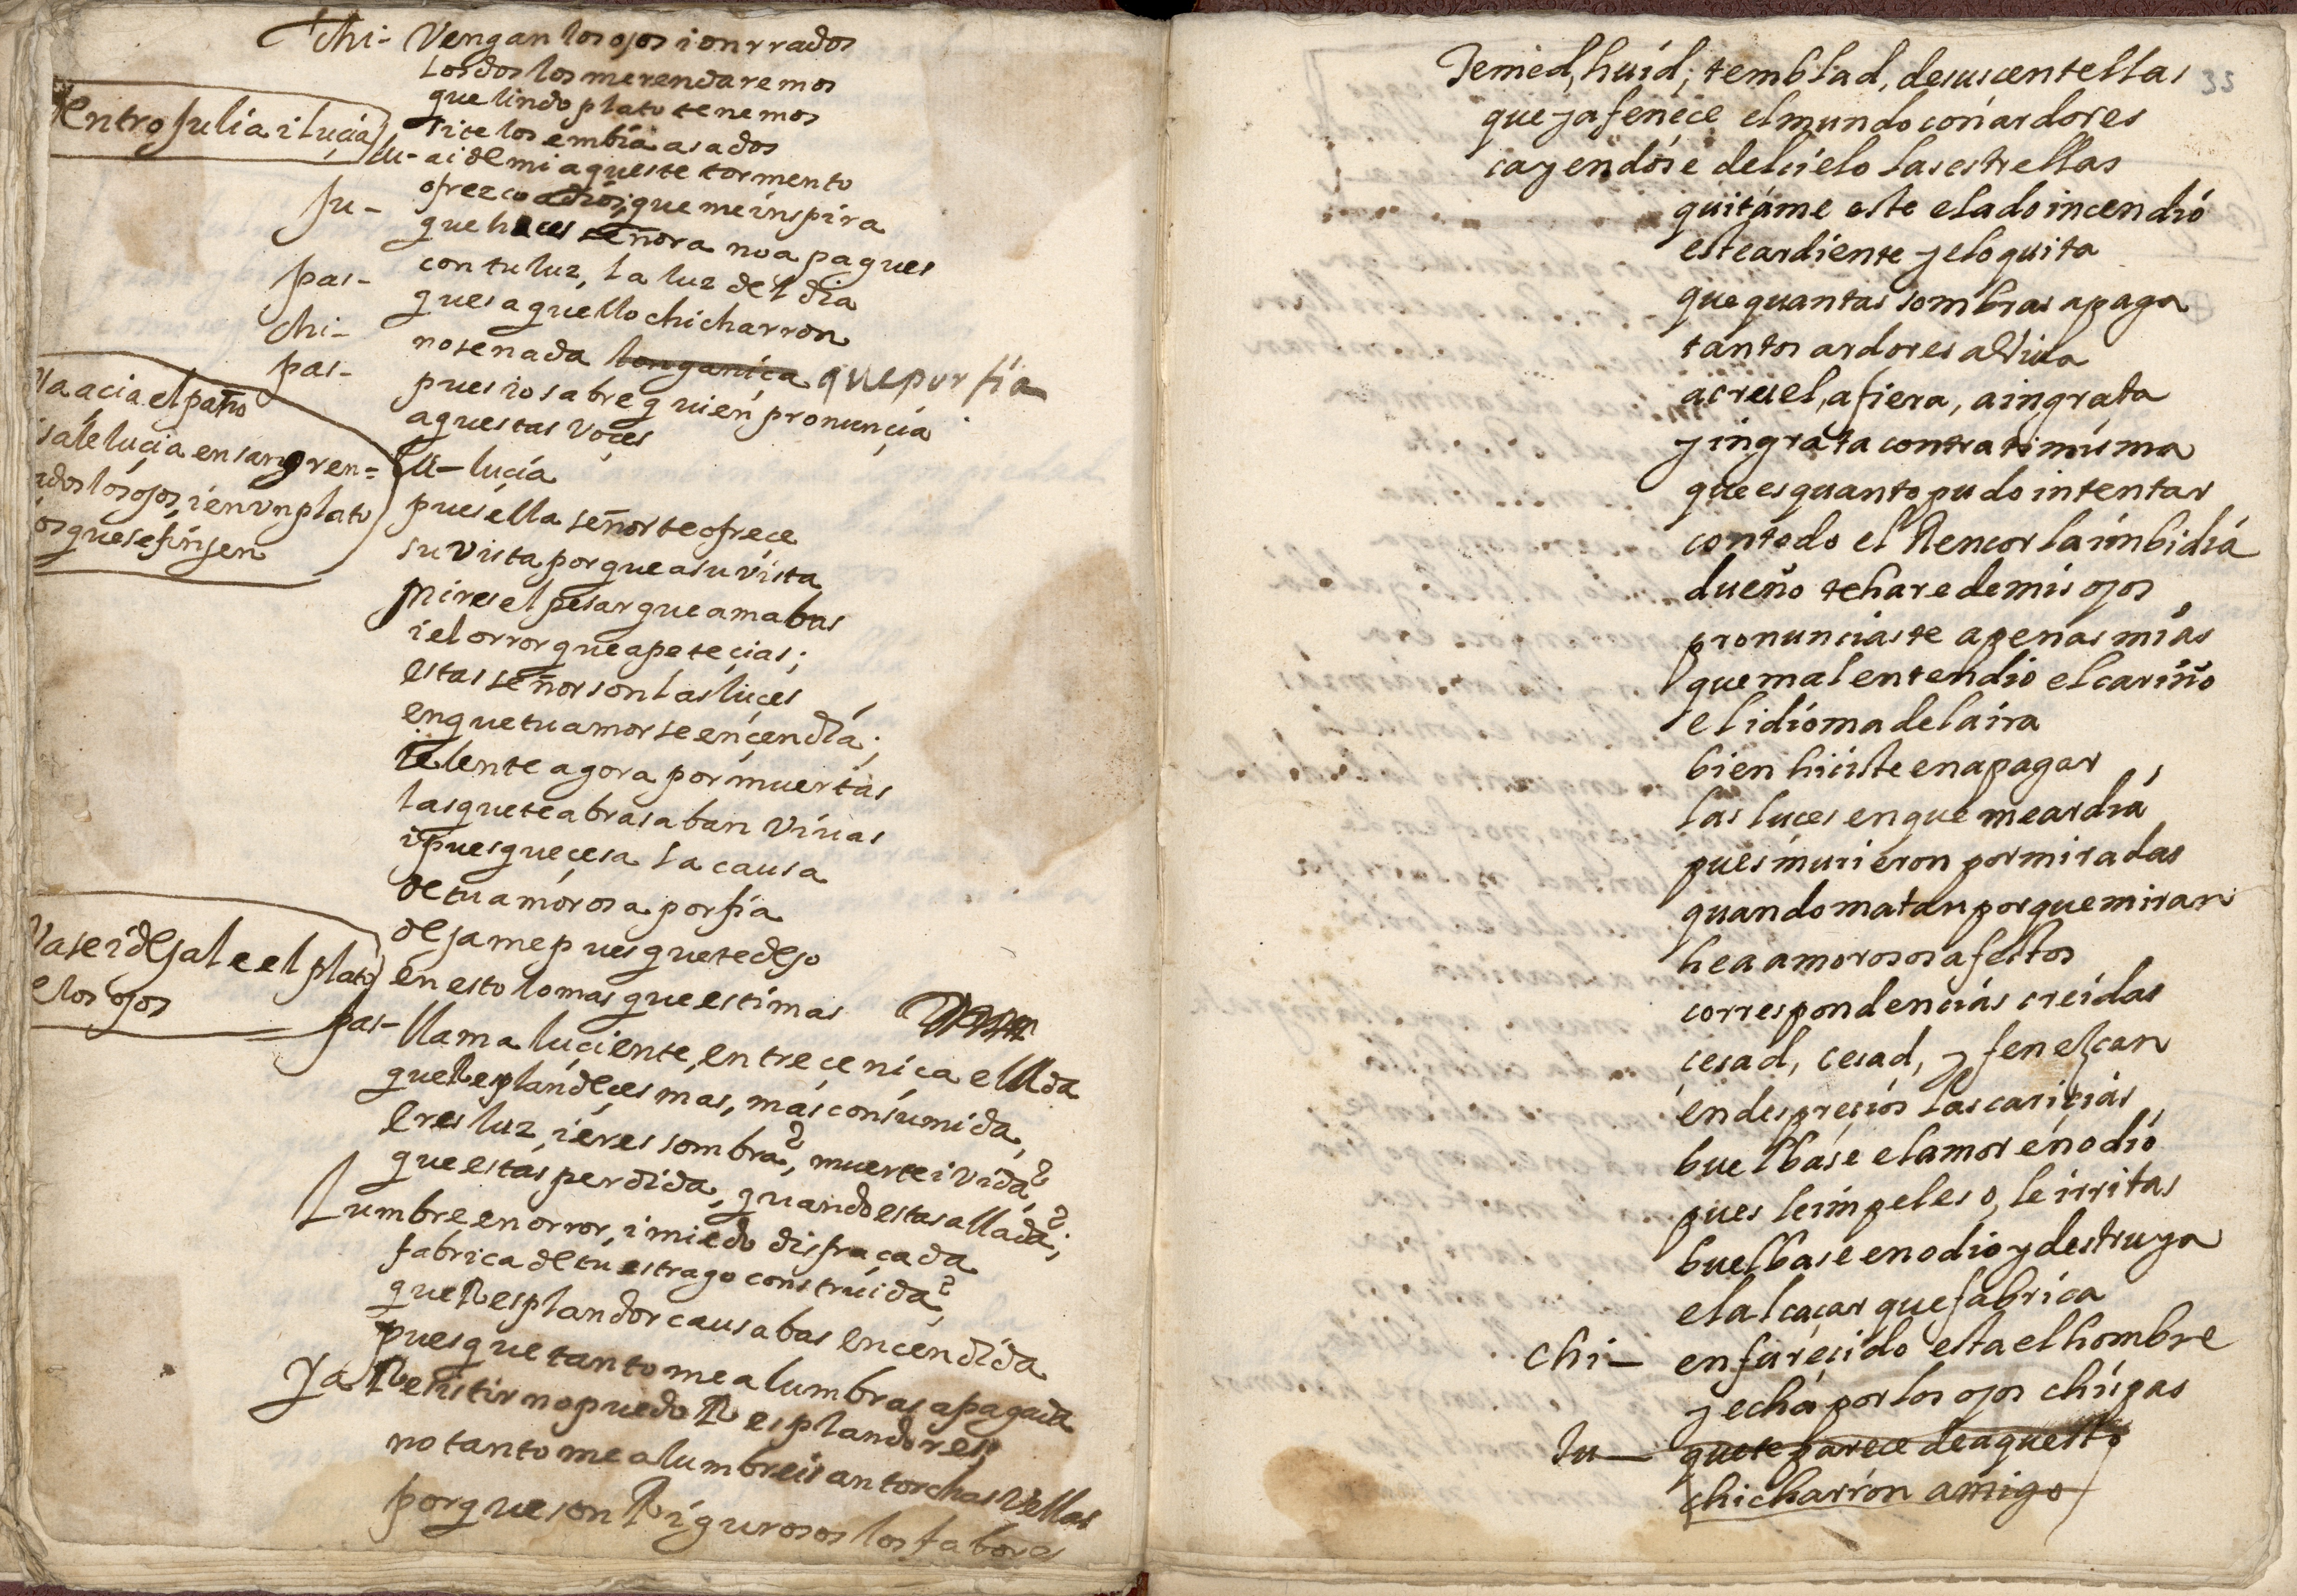 chi- Vengan los ojos i onrrados
los dos los merendaremos
que lindo plato tenemos
si te los embia asados
dentro Julia i lucia
lu- ai de mi aqueste tormento
ofrezco a dios, que me inspira
Ju- que haces señora no apagues
con tu luz, la luz del dia
pas- ques aquello chicharron
chi- no se nada longanica que porfia
pas- pues io sabre quien pronuncia
aquestas voces
Va acia el paño
i sale lucia ensangren=
ados los ojos, i en vn plato
os que se finjen
lu- lucia
pues ella señor te ofrece
su vista porque a su vista
mires el pesar que amabas
i el orror que apetecias;
estas señor son las luces
en que tu amor se encendia;
ielente agora por muertas
las que te abrasaban viuas
i pues que cesa la causa
de tu amorosa porfia
dejame pues que te dejo
en esto lo mas que estimas
Vase i dejale el plato
e los ojos
pas- llama luciente, entre ceniça ellada
que Resplandeces mas, mas consumida,
Eres luz, i eres sombra?, muerte i vida?
que estas perdida, quando estas allada?;
Lumbre en orror, i miedo disfraçada
fabrica de tu estrago construida?
que Resplandor causabas encendida
pues que tanto me alumbras apagada
Ya Resistir no puedo Resplandores;
no tanto me alumbreis antorchas vellas
porque son Rigurosos los fabores
33
Temed, huid; temblad, de sus centellas
que ya fenece el mundo con ardores
cayendose del cielo las estrellas
quitame este elado incendio
este ardiente yelo quita
que quantas sombras apaga
tantos ardores aviua
a cruel, a fiera, a ingrata
y ingrata contra ti misma
que es quanto pudo intentar
con todo el Rencor la imbidia
dueño te hare de mis ojos
pronunciaste a penas mias
que mal entendio el cariño
el idioma de la ira
bien hiciste en apagar
las luces en que me ardia
pues murieron por miradas
quando matan porque miran
hea amorosos afectos
correspondencias creidas
cesad, cesad, y fenescan
en desprecios las caricias
buelbase el amor en odio
pues le impeles o, le irritas
buelbase en odio y destruya
el alcaçar que fabrica
chi- enfurecido esta el hombre
y echa por los ojos chispas
Ju- que te parece de aquesto
chicharron amigo